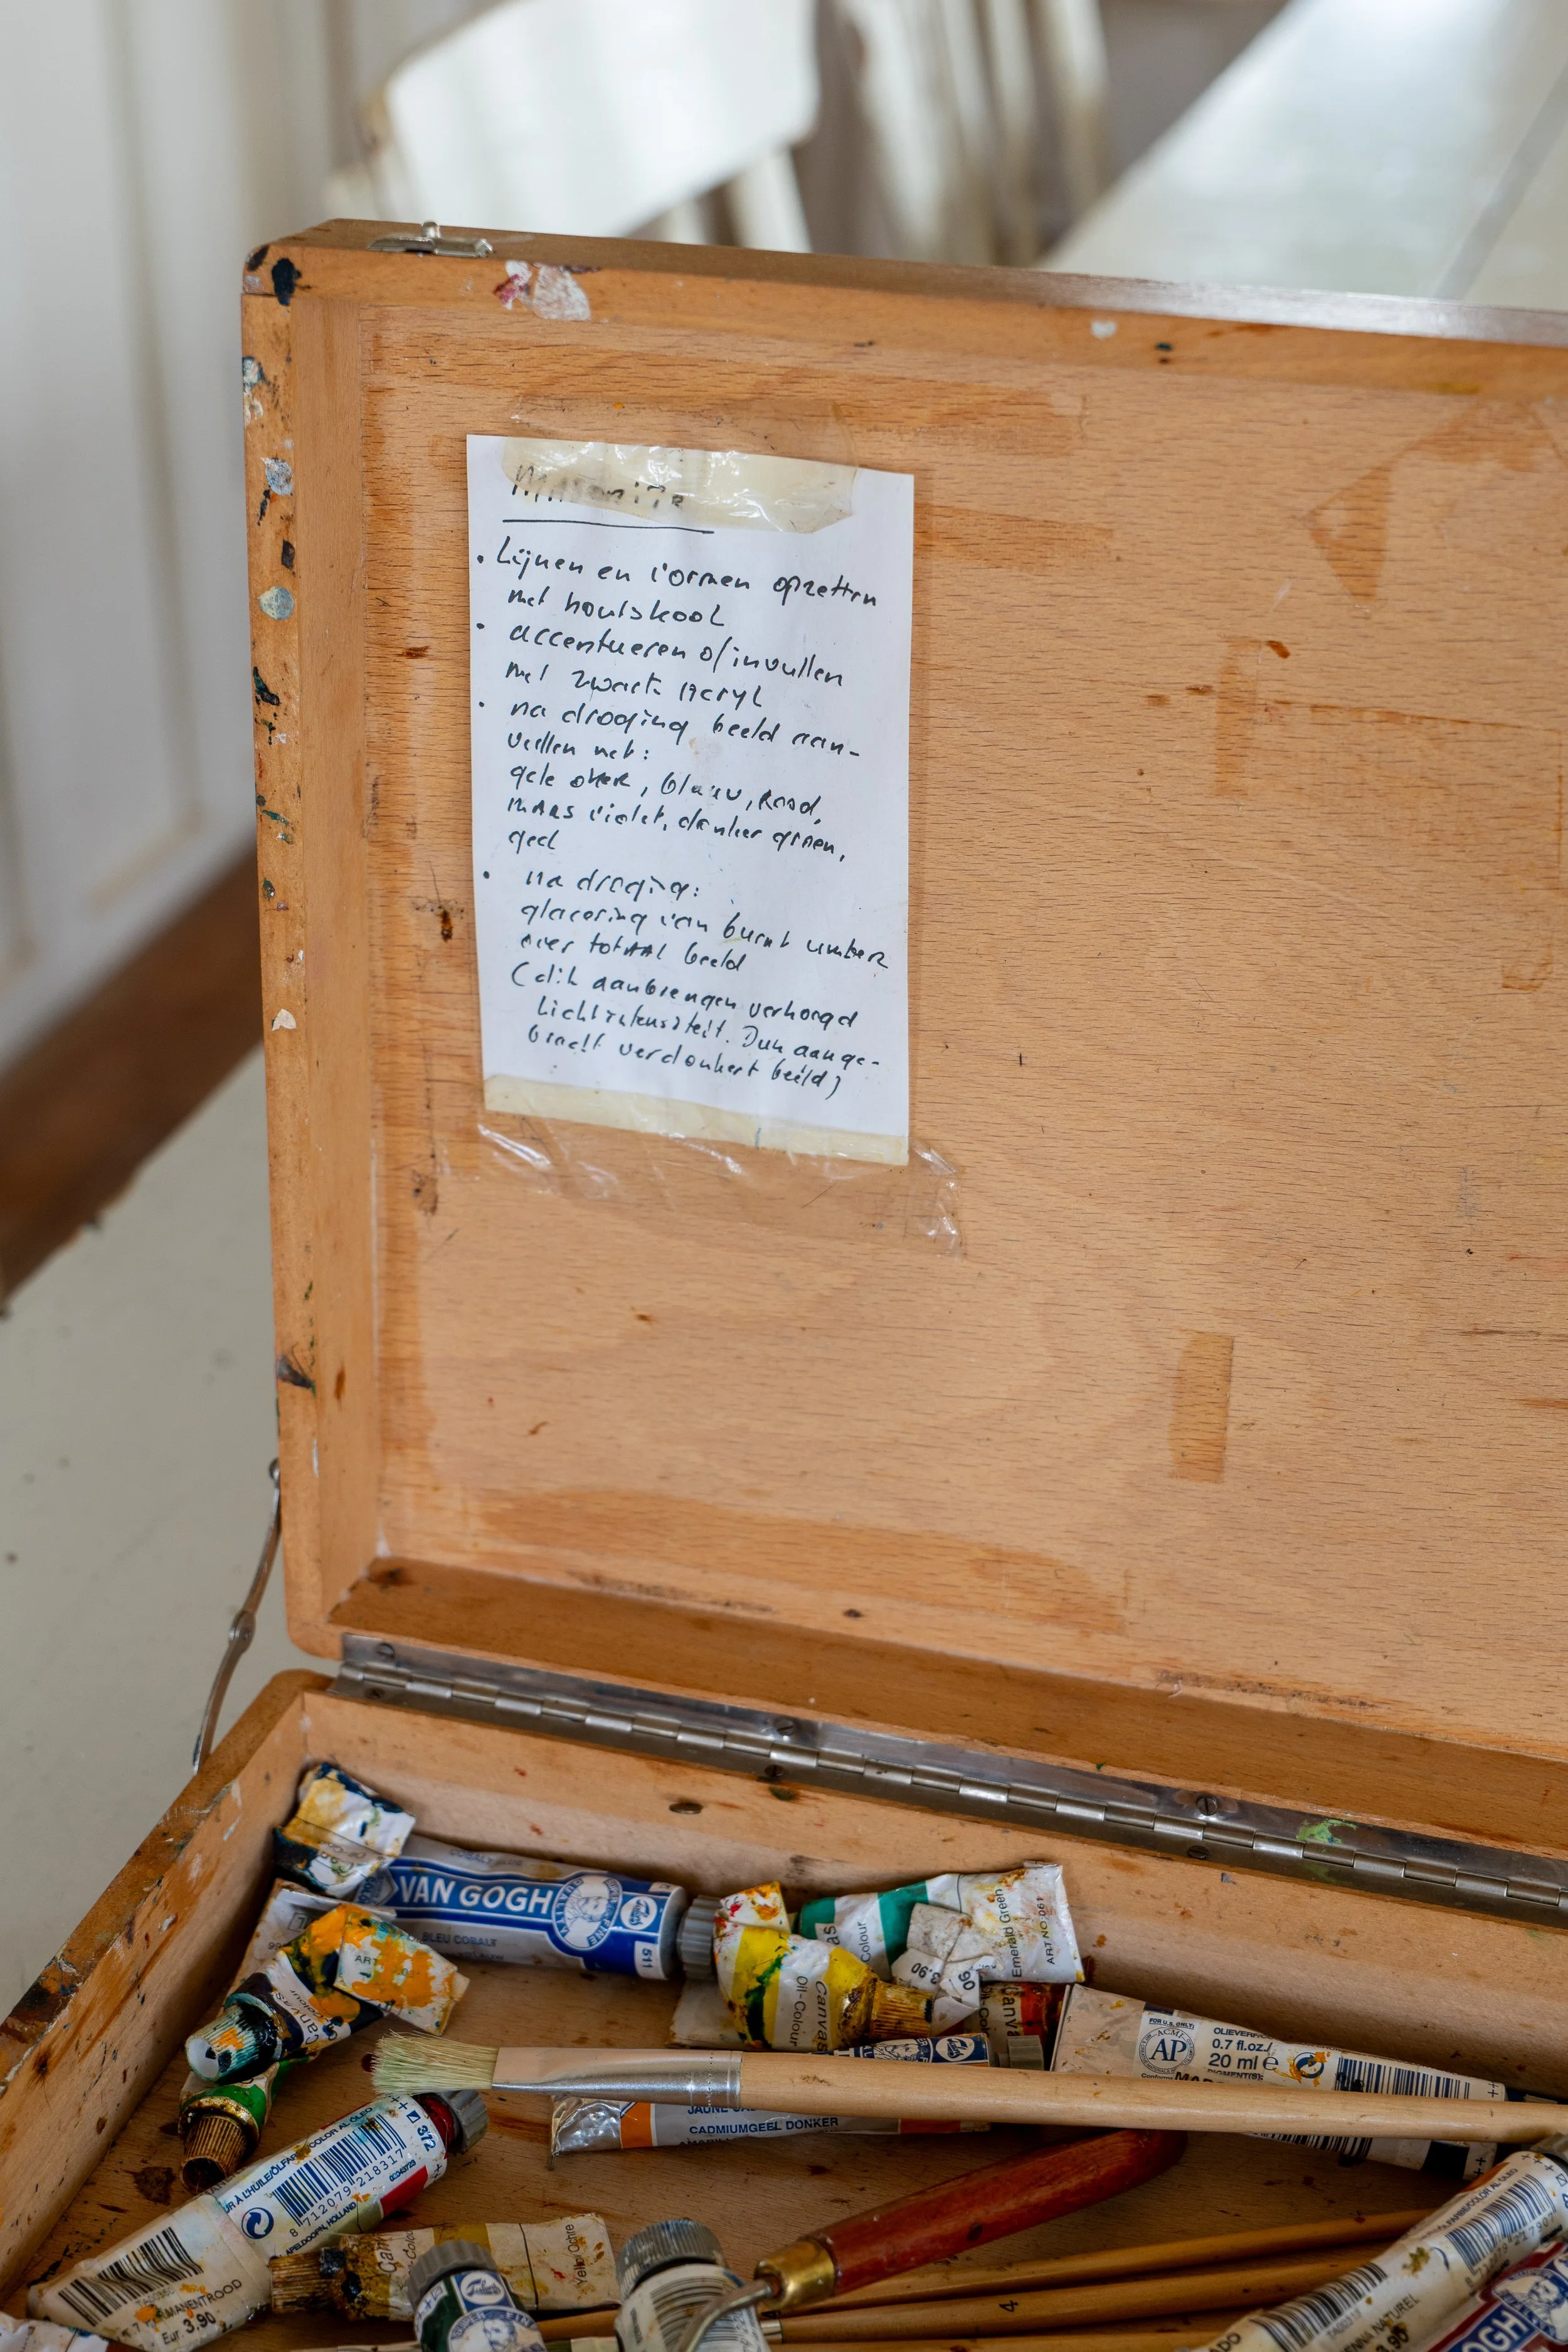 Masonite
• Lijnen en vormen opzetten
met houtskool
• accentueren of invullen
met zwart acryl
• na droging beeld aan-
vullen met:
gele oker, blauw, Rood,
MARS violet, donker groen,
geel
• na droging:
glacering van burnt umber
over totAAl beeld
(dik aanbrengen verhoogd
Lichtintensiteit. Dun aange-
bracht verdonkert beeld)
VAN GOGH
BLEU COBALT
511
Oil-Colour
Canvas
Colour
Emerald Green
ART.NO:061
3.90
FOR U.S. ONLY:
ACMI
AP
OLIEVERF
0.7 fl.oz./
20 ml e
PIGMENT(S):
CADMIUMGEEL DONKER
372
8 712079 218317
APELDOORN, HOLLAND
PERMANENTROOD
Eur 3.90
Yellow Ochre
4